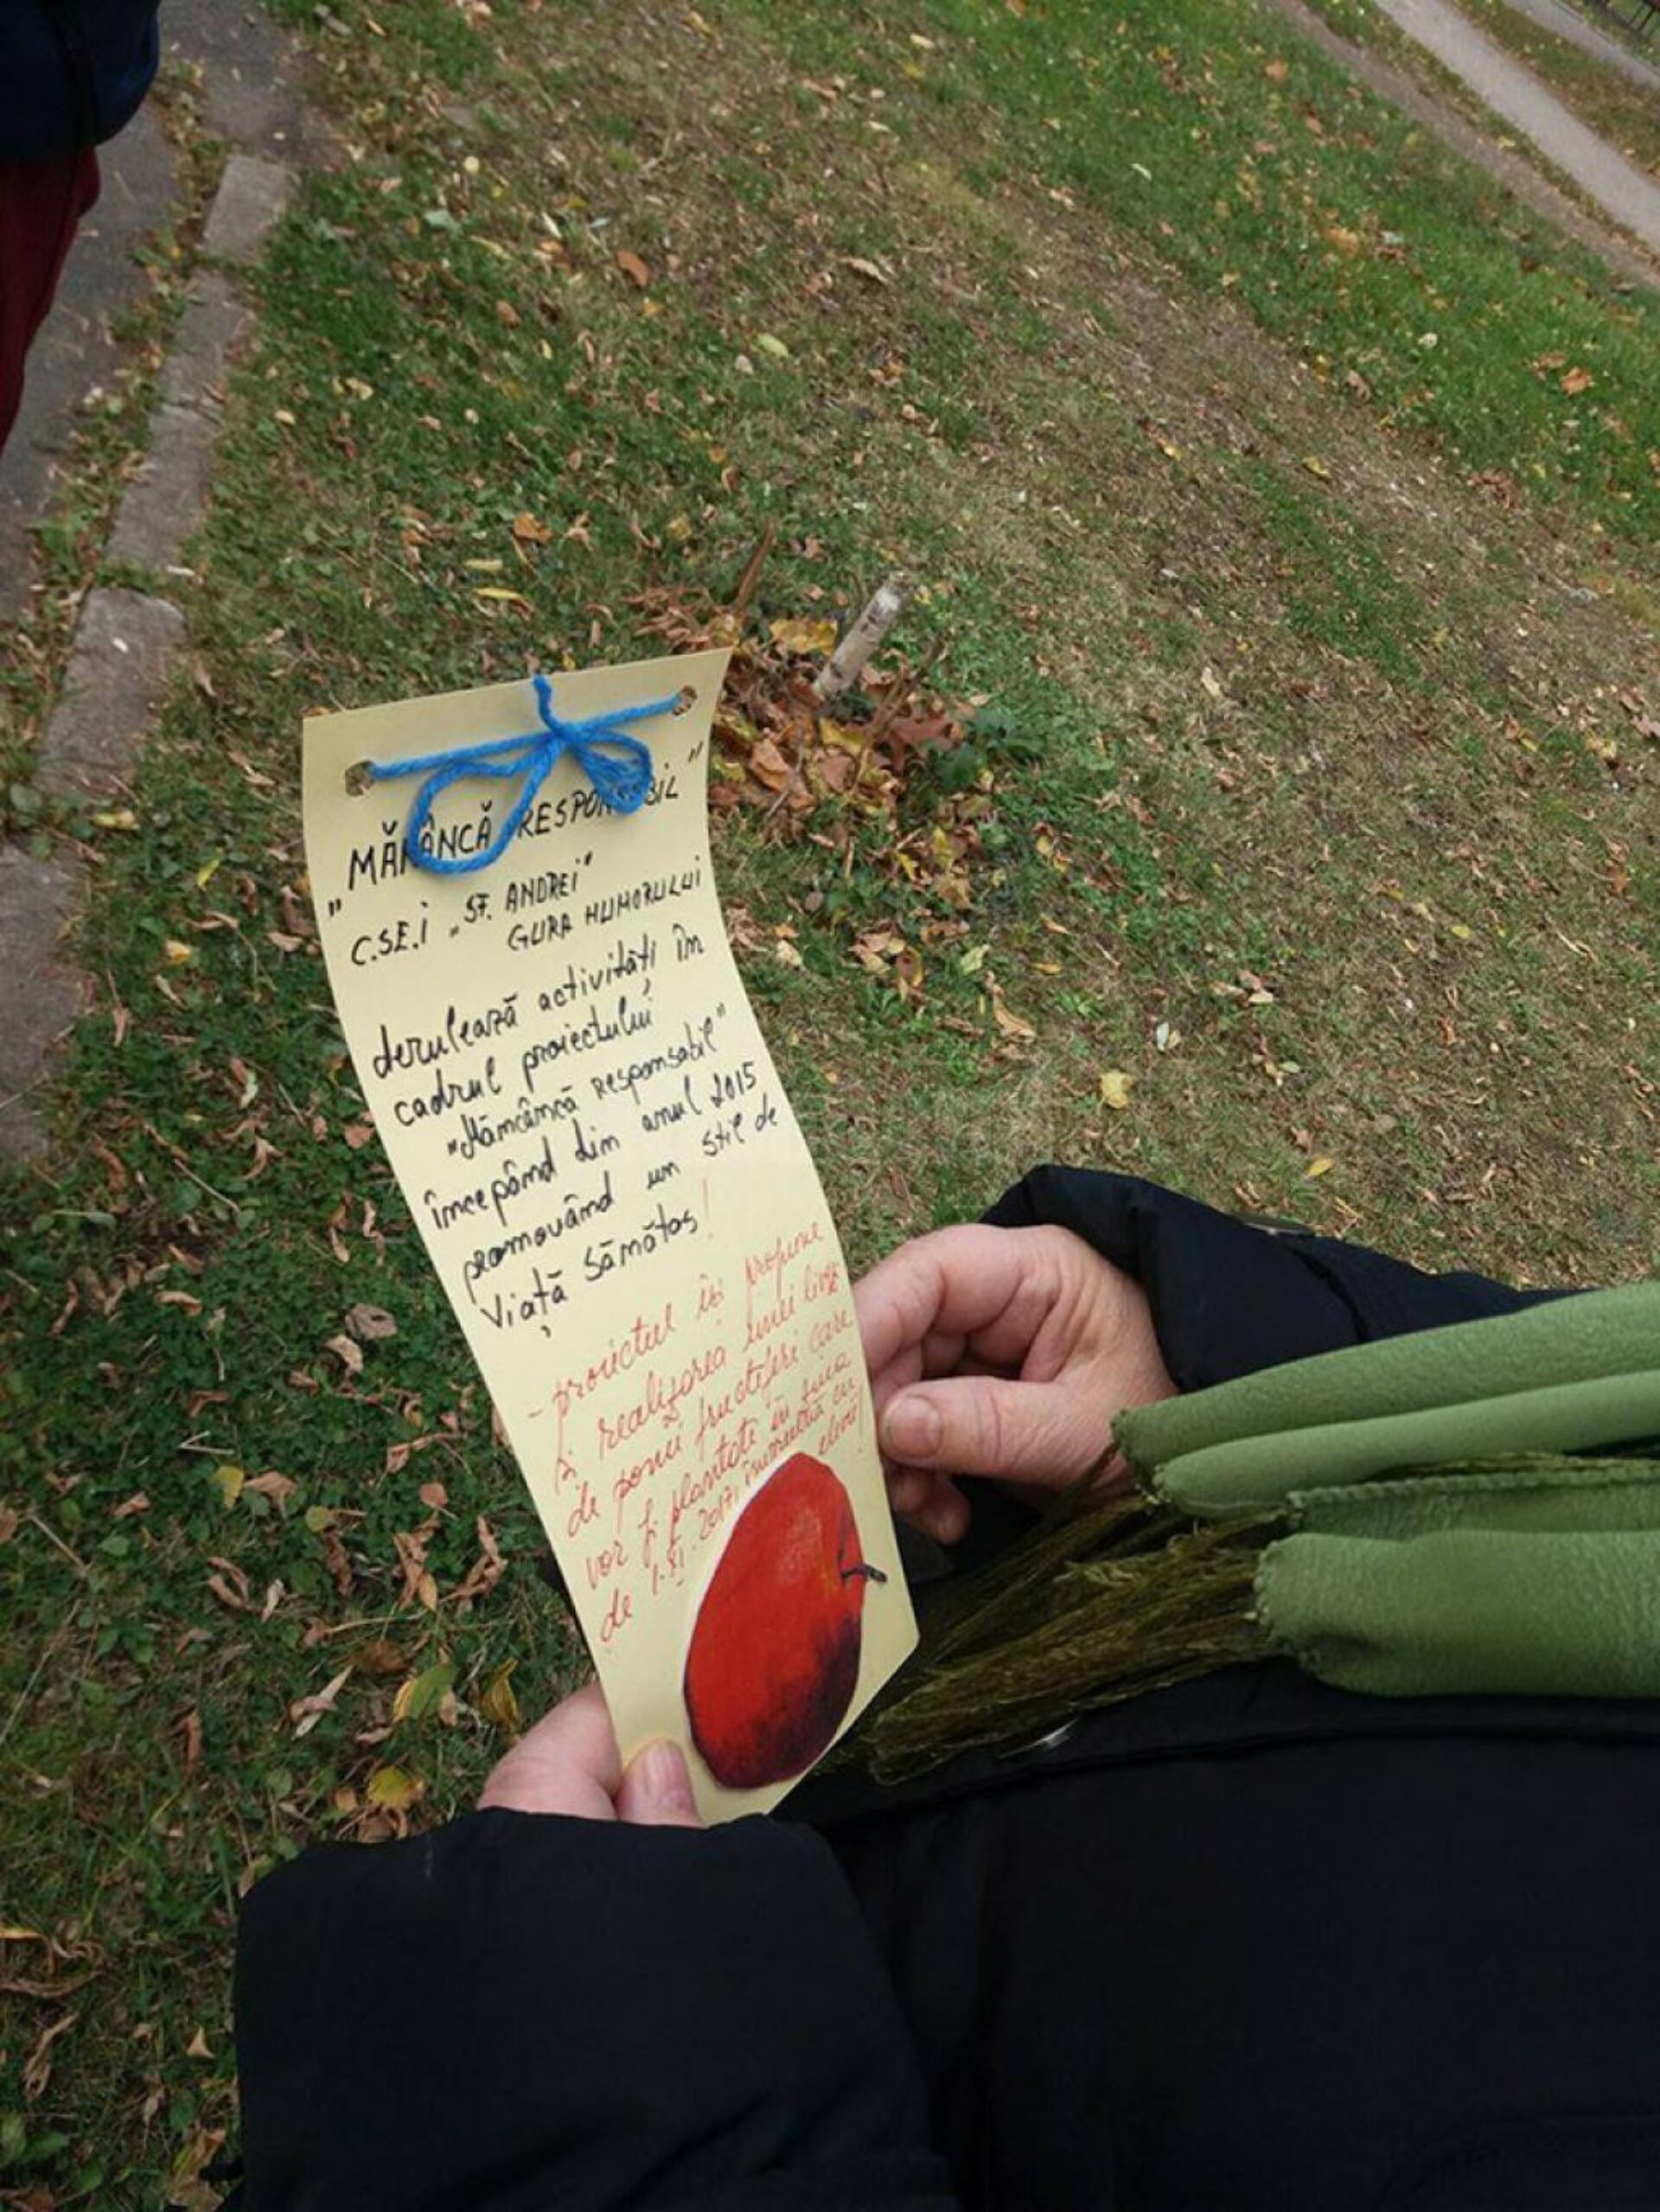 "MĂNÂNCĂ RESPONSABIL"
C.S.E.I „SF. ANDREI"
GURA HUMORULUI
derulează activități în
cadrul proiectului
"Mănâncă responsabil"
începând din anul 2015
promovând un stil de
viață sănătos!
- proiectul își propune
și realizarea unei livezi
de pomi fructiferi care
vor fi plantate în ziua
de 1.XI.2017, împreună cu
elevii!